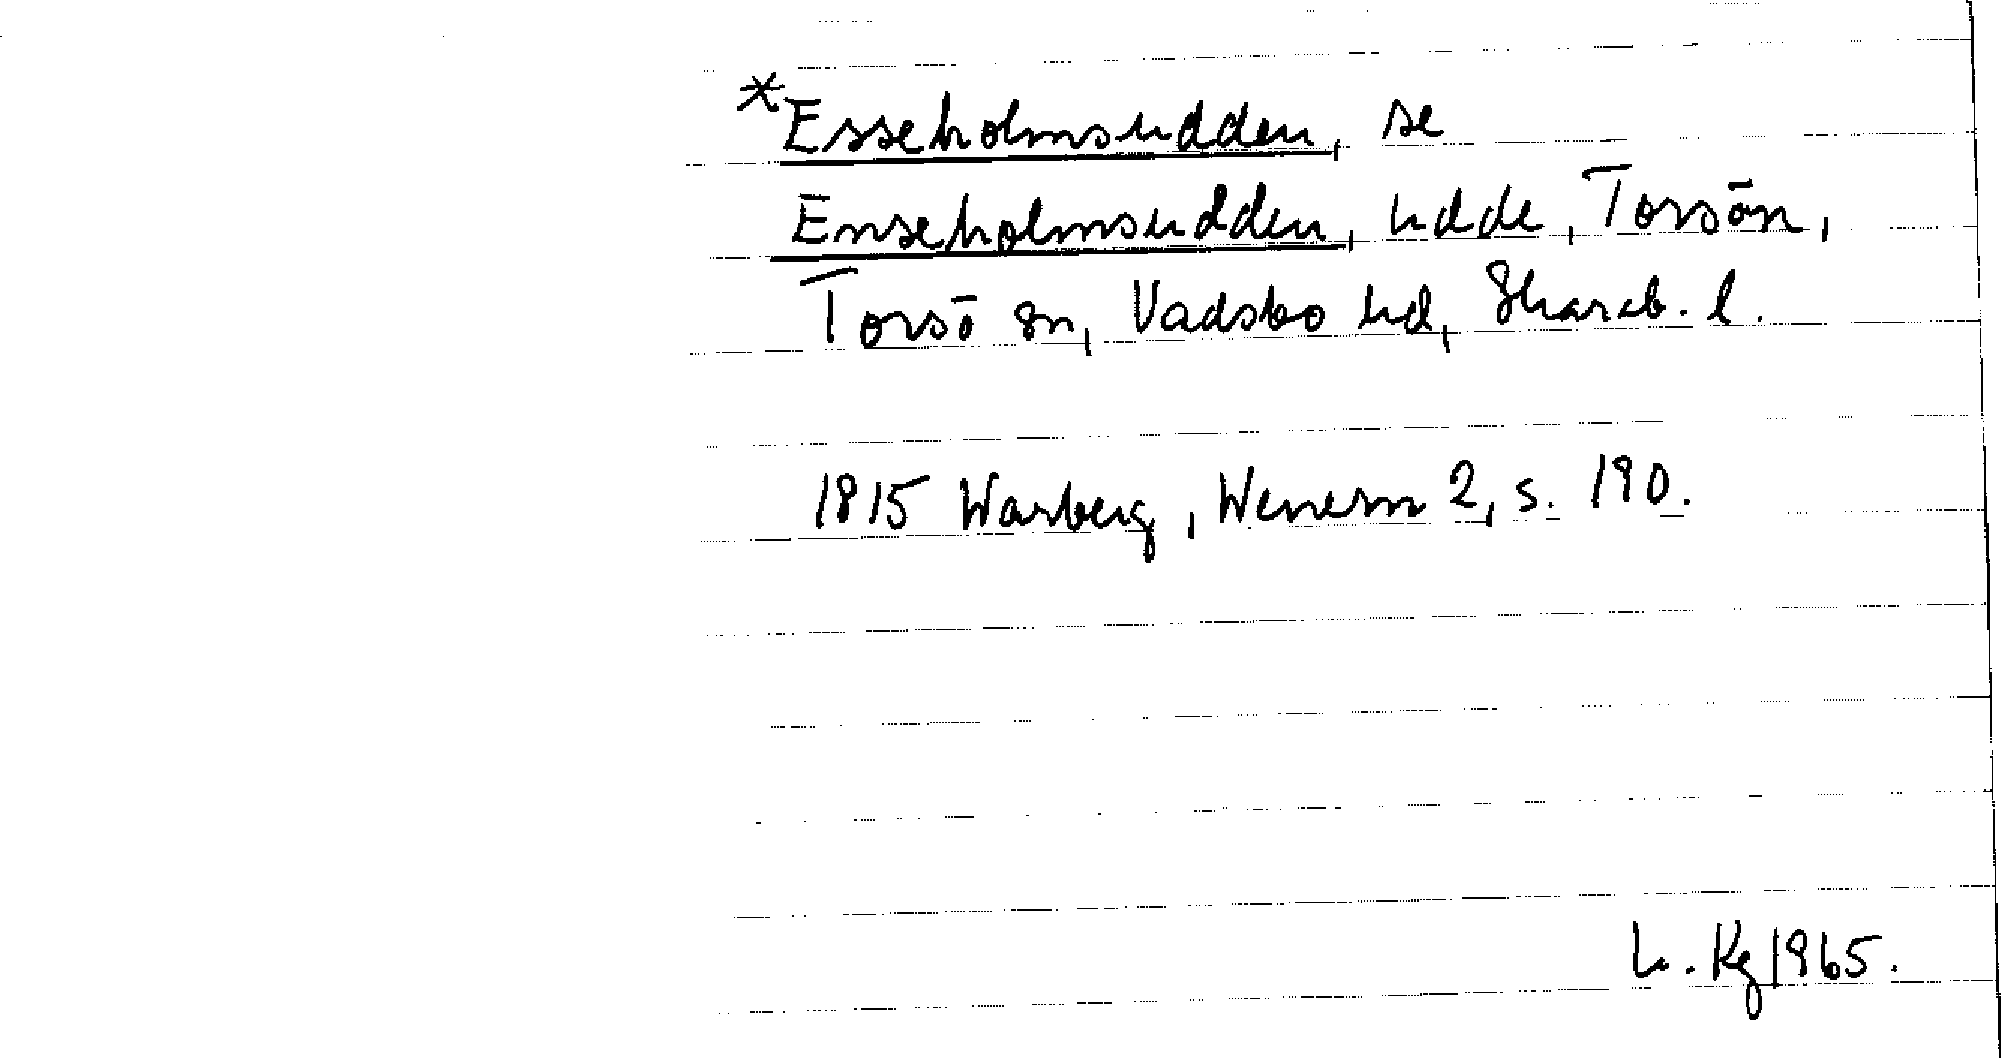 *Esseholmsudden, se
Enseholmsudden, udde, Torsön,
Torsö sn, Vadsbo hd, Skarab. l.
1815 Warberg, Wenern 2, s. 190.
h. Kg 1965.